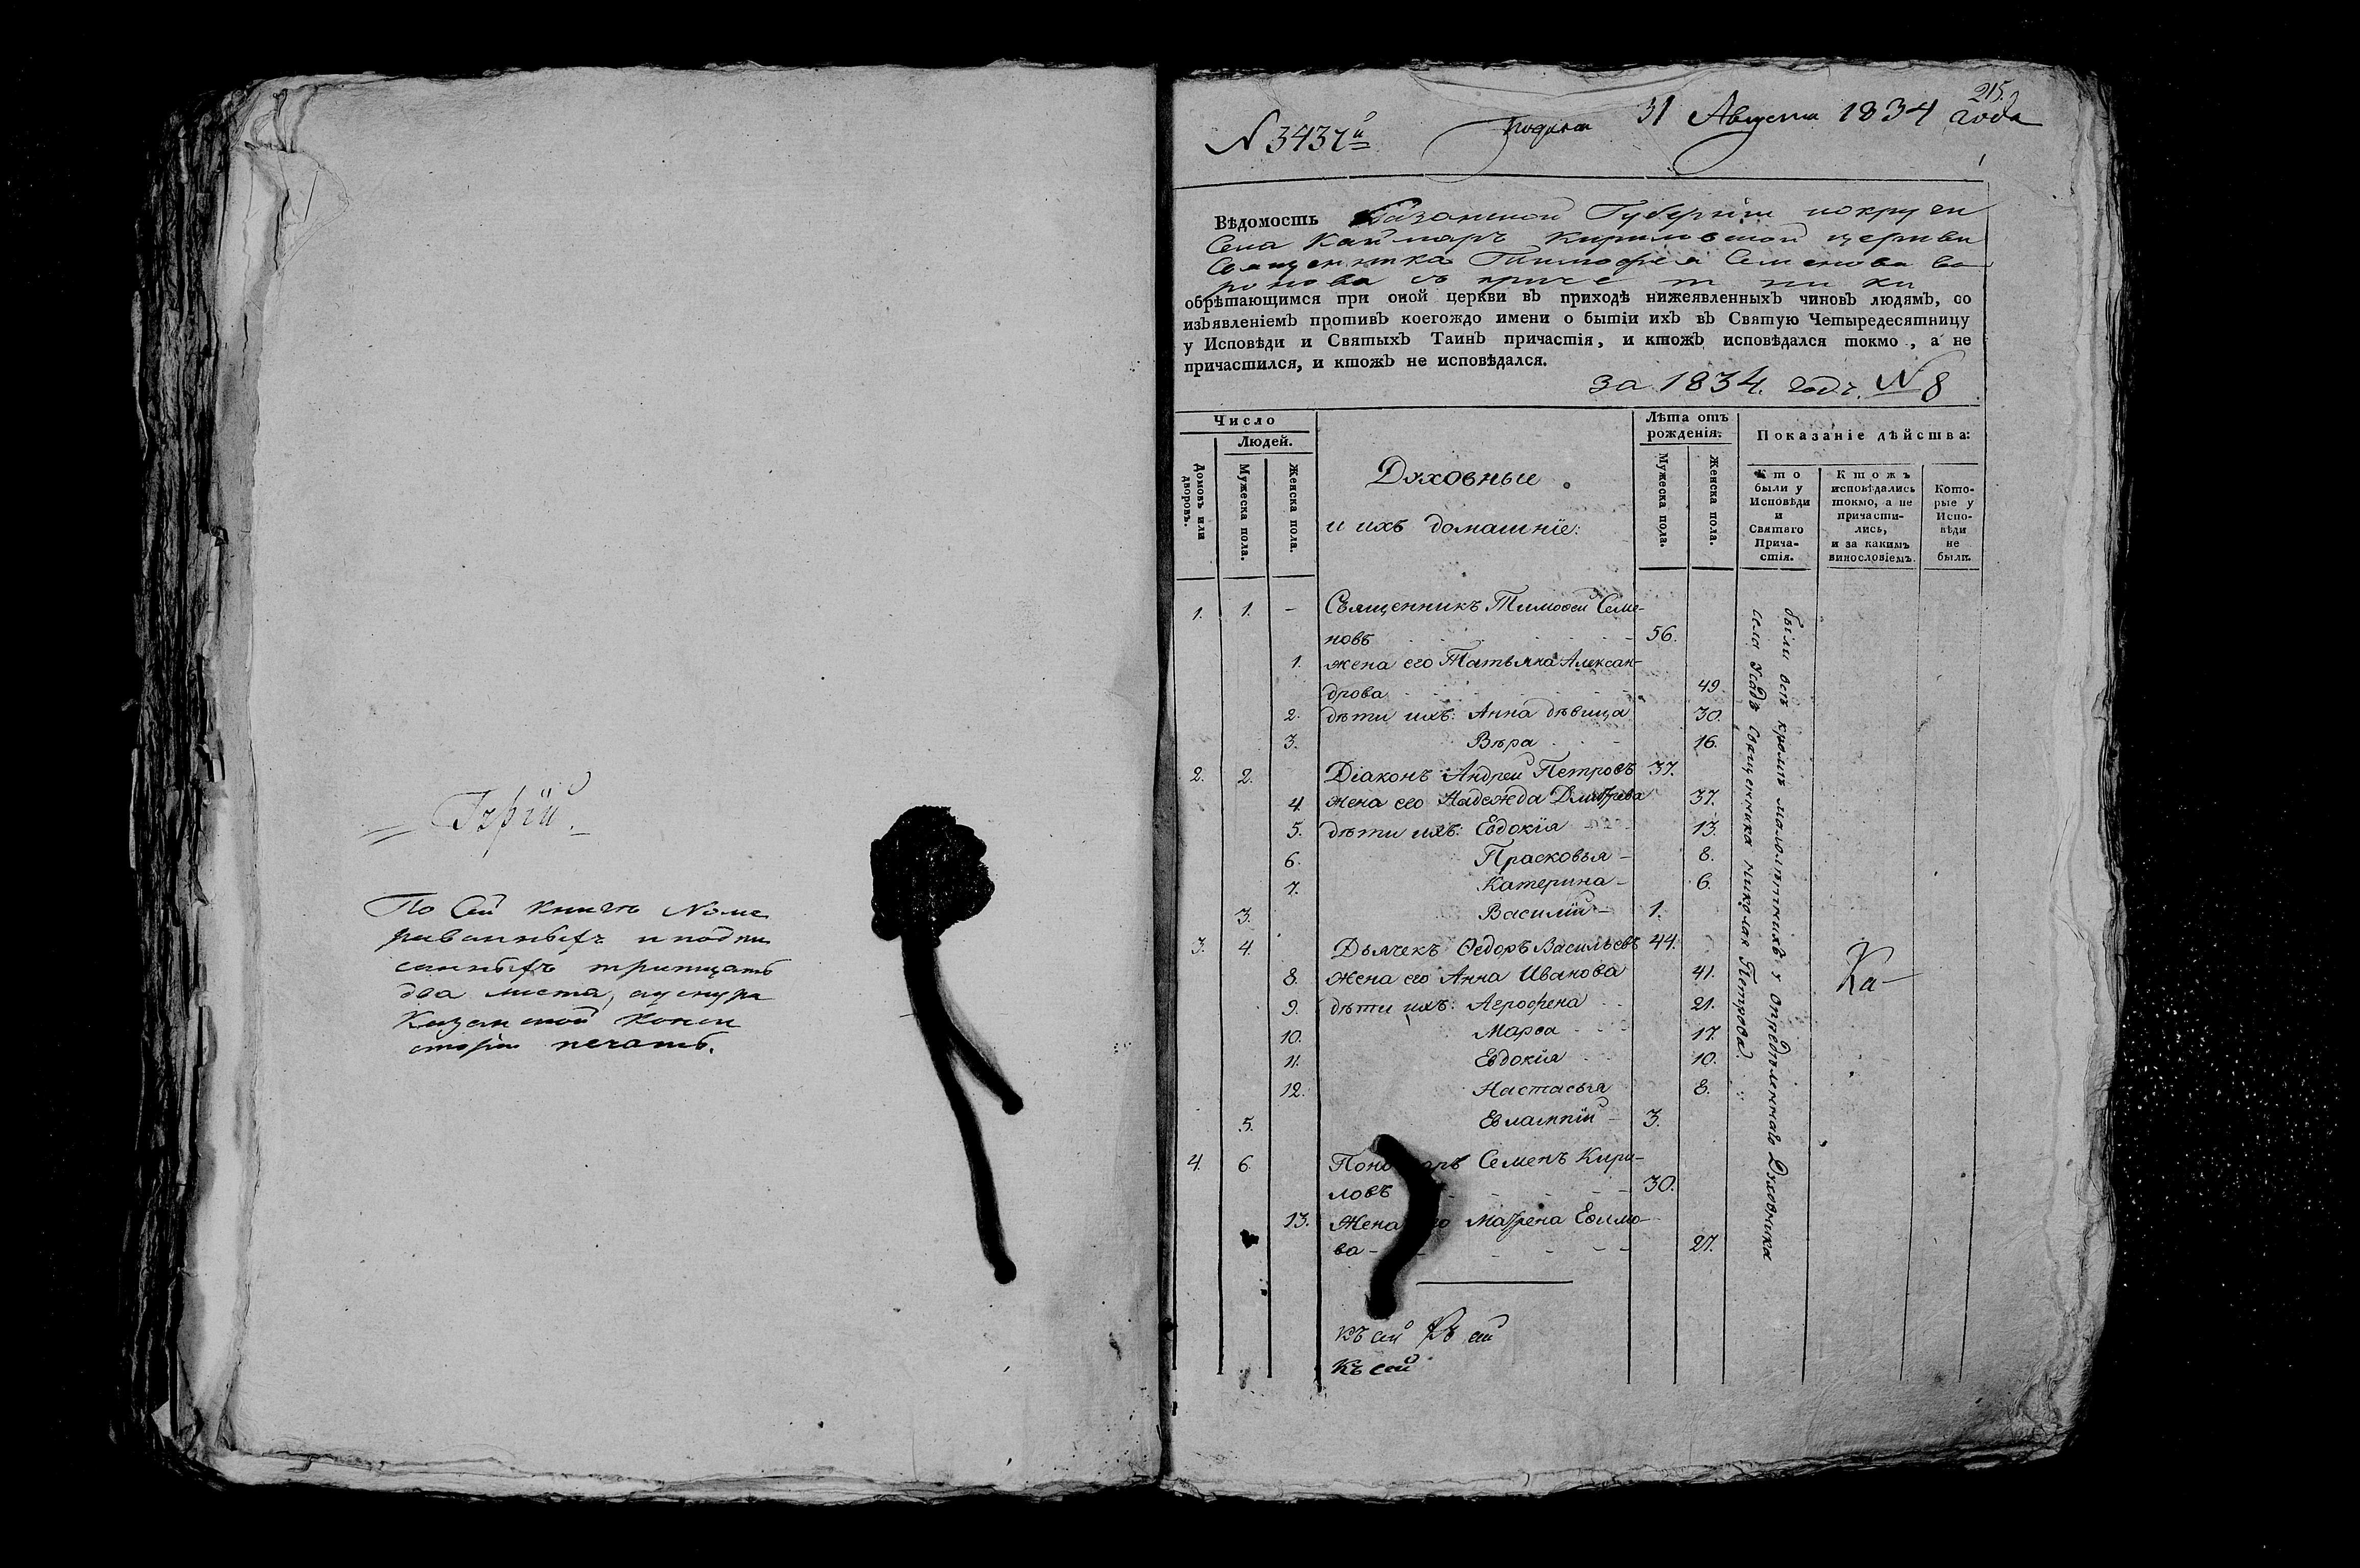 По Сей книгѣ Номе
рованныхъ и подпи
санныхъ тритцать
два листа, у снура
Казанской Конси
сторіи печать.
215.
N 3437й
подана 31 Августа 1834 года
1
Вѣдомость Казанской Губерніи и округи
Села Каймаръ Кириловской церкви
Священника Тимофея Семенова
съ причетники
обрѣтающимся при оной церкви въ приходѣ нижеявленныхъ чиновъ людямъ, со
изъявленіемъ противъ коегождо имени о бытіи ихъ въ Святую Четыредесятницу
у Исповѣди и Святыхъ Таинъ причастія, и ктожъ исповѣдался токмо, а не
причастился, и ктожъ не исповѣдался.
за 1834. годъ. N 8
Число
Людей.
Домовъ или дворовъ.
Мужеска пола.
Женска пола.
Духовные
и ихъ домашніе:
Лѣта отъ
рожденія.
Мужеска пола.
Женска пола.
Показаніе дѣйства:
Кто
были у
Исповѣди
и
Святаго
Прича-
стія.
Ктожъ
исповѣдались
токмо, а не
причасти-
лись,
и за какимъ
винословіемъ.
Кото-
рые у
Испо-
вѣди
не
были.
1. 1. – Священникъ Тимоѳей Семе-
новъ 56.
1. жена его Татьяна Алексан-
дрова 49.
2. дѣти ихъ: Анна дѣвица 30.
3. Вѣра 16.
2. 2. Діаконъ Андрей Петровъ 37.
4. жена его Надежда Дмитрева 37.
5. дѣти ихъ: Евдокія 13.
6. Прасковья 8.
7. Катерина 6.
3. Василій 1.
3. 4. Дьячекъ Ѳедоръ Васильевъ 44.
8. Жена его Анна Иванова 41.
9. дѣти ихъ: Агрофена 21.
10. Марѳа 17.
11. Евдокія 10.
12. Настасья 8.
5. Евлампій 3.
4. 6. Пономарь Семенъ Кири-
ловъ 30.
13. Жена его Матрена Ефимо-
ва 27.
были всѣ кромѣ малолѣтнихъ у опредѣленнаго Духовника
села Усадъ Священника Николая Петрова.
Ка-
Къ сей Къ сей
Къ сей